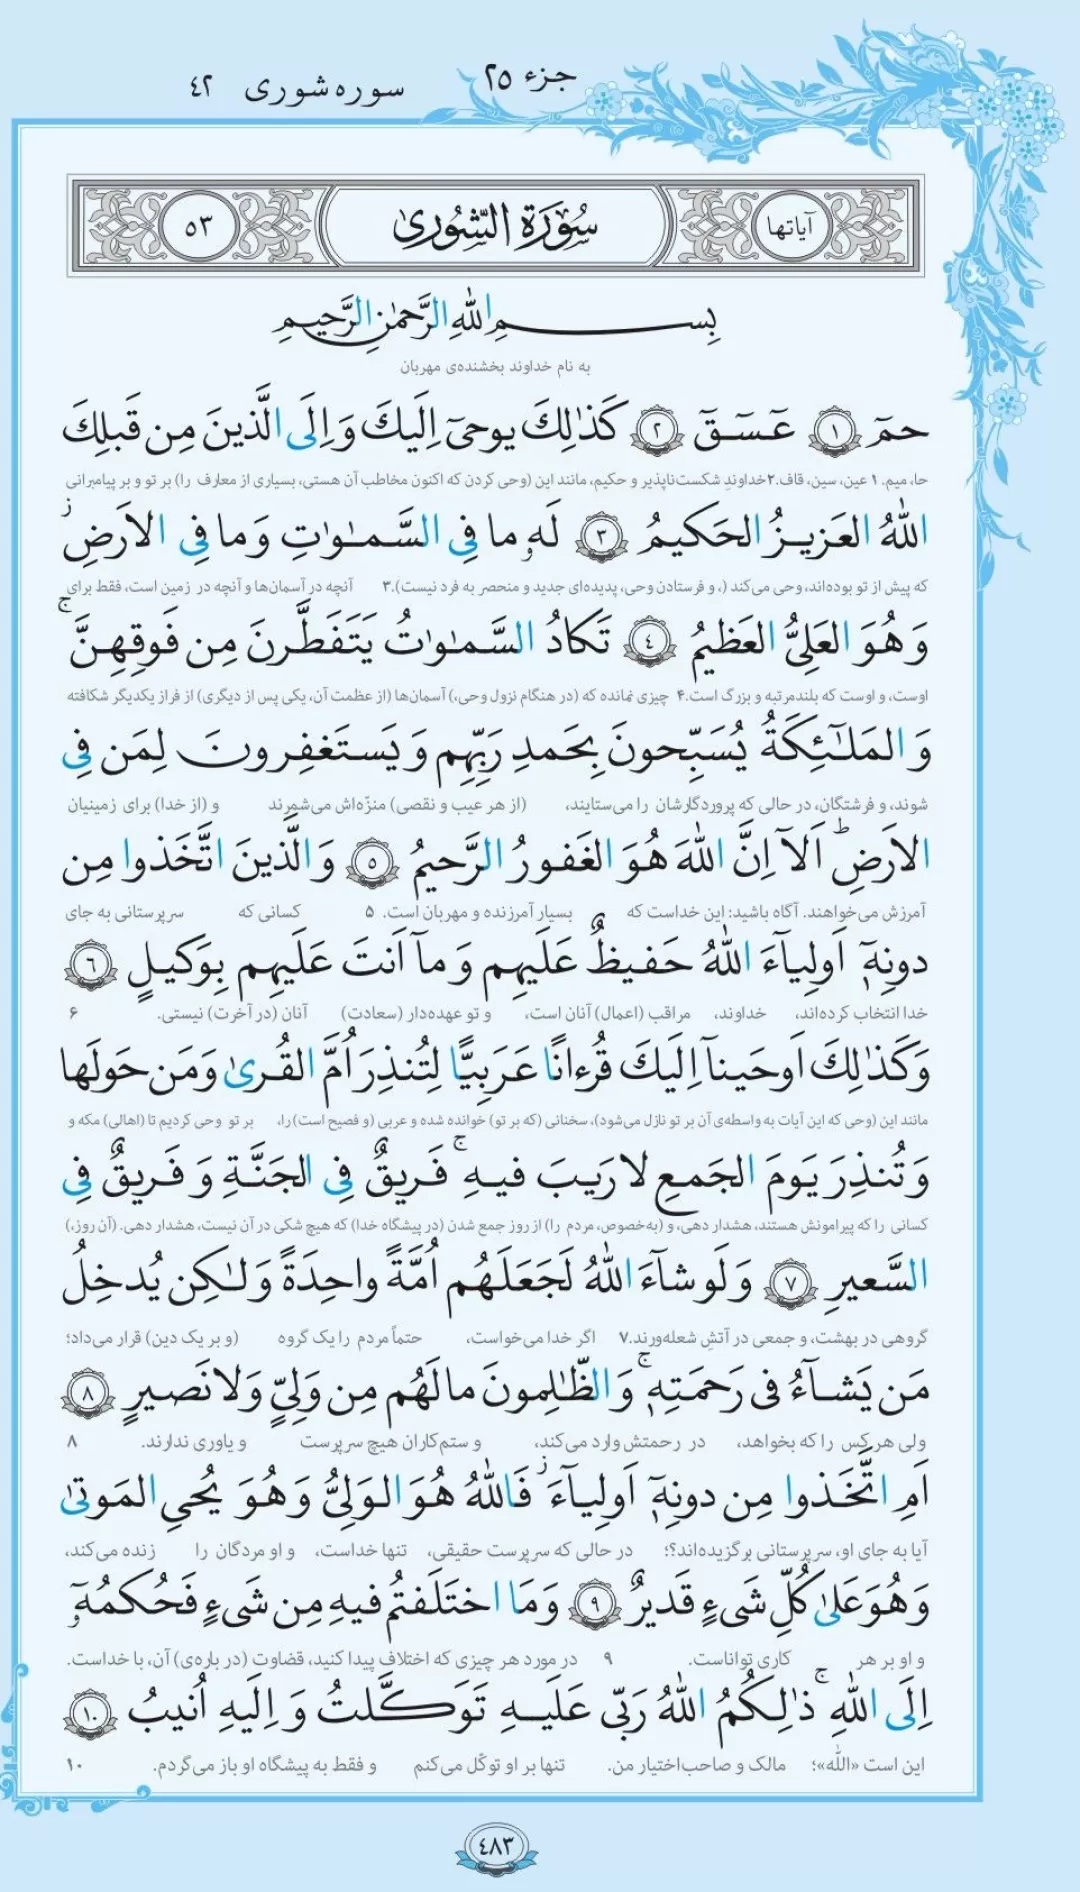 جزء ۲۵
سوره شوری ۴۲
آیاتها سُوْرَةُ الشُّورىٰ ۵۳
بِسْمِ اللّٰهِ الرَّحْمٰنِ الرَّحيمِ
به نام خداوند بخشنده‌ی مهربان
حمٓ ١ عٓسٓقٓ ٢ كَذٰلِكَ يوحىٓ اِلَيكَ وَ اِلَى الَّذينَ مِن قَبلِكَ
حا، میم. ۱ عین، سین، قاف.۲ خداوندِ شکست‌ناپذیر و حکیم، مانند این (وحی کردن که اکنون مخاطب آن هستی، بسیاری از معارف را) بر تو و بر پیامبرانی
اللّٰهُ العَزيزُ الحَكيمُ ٣ لَهٗ ما فِى السَّمٰوٰتِ وَ ما فِى الاَرضِ ز
که پیش از تو بوده‌اند، وحی می‌کند (، و فرستادن وحی، پدیده‌ای جدید و منحصر به فرد نیست).۳ آنچه در آسمان‌ها و آنچه در زمین است، فقط برای
وَ هُوَ العَلِىُّ العَظيمُ ٤ تَكادُ السَّمٰوٰتُ يَتَفَطَّرنَ مِن فَوقِهِنَّ ج
اوست، و اوست که بلندمرتبه و بزرگ است.۴ چیزی نمانده که (در هنگام نزول وحی،) آسمان‌ها (از عظمت آن، یکی پس از دیگری) از فراز یکدیگر شکافته
وَ المَلٰٓئِكَةُ يُسَبِّحونَ بِحَمدِ رَبِّهِم وَ يَستَغفِرونَ لِمَن فِى
شوند، و فرشتگان، در حالی که پروردگارشان را می‌ستایند، (از هر عیب و نقصی) منزّه‌اش می‌شمرند و (از خدا) برای زمینیان
الاَرضِ ط اَلآ اِنَّ اللّٰهَ هُوَ الغَفورُ الرَّحيمُ ٥ وَ الَّذينَ اتَّخَذوا مِن
آمرزش می‌خواهند. آگاه باشید: این خداست که بسیار آمرزنده و مهربان است. ۵ کسانی که سرپرستانی به جای
دونِهٖٓ اَولِيآءَ اللّٰهُ حَفيظٌ عَلَيهِم وَ مآ اَنتَ عَلَيهِم بِوَكيلٍ ٦
خدا انتخاب کرده‌اند، خداوند، مراقب (اعمال) آنان است، و تو عهده‌دار (سعادت) آنان (در آخرت) نیستی. ۶
وَ كَذٰلِكَ اَوحَينآ اِلَيكَ قُرءانًا عَرَبِيًّا لِتُنذِرَ اُمَّ القُرىٰ وَ مَن حَولَها
مانند این (وحی که این آیات به واسطه‌ی آن بر تو نازل می‌شود)، سخنانی (که بر تو) خوانده شده و عربی (و فصیح است) را، بر تو وحی کردیم تا (اهالی) مکه و
وَ تُنذِرَ يَومَ الجَمعِ لا رَيبَ فيهِ ج فَريقٌ فِى الجَنَّةِ وَ فَريقٌ فِى
کسانی را که پیرامونش هستند، هشدار دهی، و (به‌خصوص، مردم را) از روز جمع شدن (در پیشگاه خدا) که هیچ شکی در آن نیست، هشدار دهی. (آن روز،)
السَّعيرِ ٧ وَ لَو شآءَ اللّٰهُ لَجَعَلَهُم اُمَّةً واحِدَةً وَ لٰكِن يُدخِلُ
گروهی در بهشت، و جمعی در آتشِ شعله‌ورند.۷ اگر خدا می‌خواست، حتماً مردم را یک گروه (و بر یک دین) قرار می‌داد؛
مَن يَشآءُ فى رَحمَتِهٖ ج وَ الظّٰلِمونَ ما لَهُم مِن وَلِىٍّ وَ لا نَصيرٍ ٨
ولی هر کس را که بخواهد، در رحمتش وارد می‌کند، و ستم‌کاران هیچ سرپرست و یاوری ندارند. ۸
اَمِ اتَّخَذوا مِن دونِهٖٓ اَولِيآءَ ز فَاللّٰهُ هُوَ الوَلِىُّ وَ هُوَ يُحىِ المَوتىٰ
آیا به جای او، سرپرستانی برگزیده‌اند؟؛ در حالی که سرپرست حقیقی، تنها خداست، و او مردگان را زنده می‌کند،
وَ هُوَ عَلىٰ كُلِّ شَىءٍ قَديرٌ ٩ وَ مَا اختَلَفتُم فيهِ مِن شَىءٍ فَحُكمُهٗٓ
و او بر هر کاری تواناست. ۹ در مورد هر چیزی که اختلاف پیدا کنید، قضاوت (در باره‌ی) آن، با خداست.
اِلَى اللّٰهِ ج ذٰلِكُمُ اللّٰهُ رَبّى عَلَيهِ تَوَكَّلتُ وَ اِلَيهِ اُنيبُ ١٠
این است «الله»؛ مالک و صاحب‌اختیار من. تنها بر او توکّل می‌کنم و فقط به پیشگاه او باز می‌گردم. ۱۰
۴۸۳